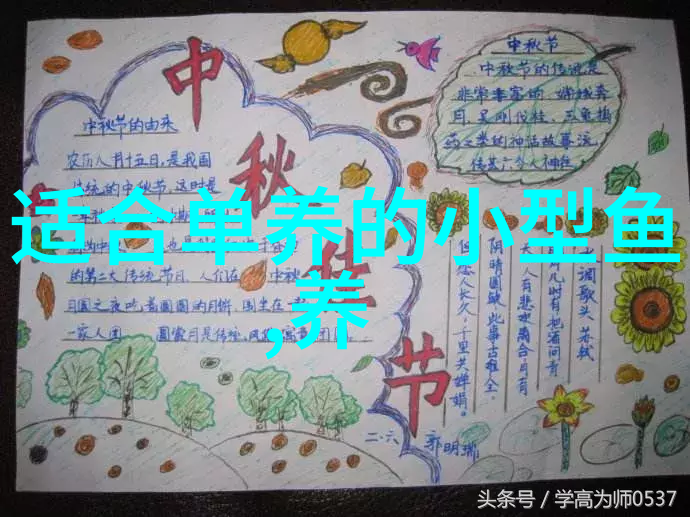 中秋佳节
中秋节的由来
农历八月十五日,是我国
传统的中秋节,这时是
的第二大传统节日,人们在 中秋
月圆之夜吃着圆圆的月饼,围坐在一
一家人团 圆赏月是传统
中秋节
中秋节的传说是
非常丰富的,嫦娥奔
月,吴刚伐桂,玉兔捣
药之类的神话故事流
传甚
水调歌头 苏轼
明月几时有把酒问青
天
人有悲欢离合月有
阴晴圆缺此事古难全。
但愿人长久,千里共婵娟。
二.六 郭明瑞
适合单养的小型鱼
,养
头条号 / 学高为师0537